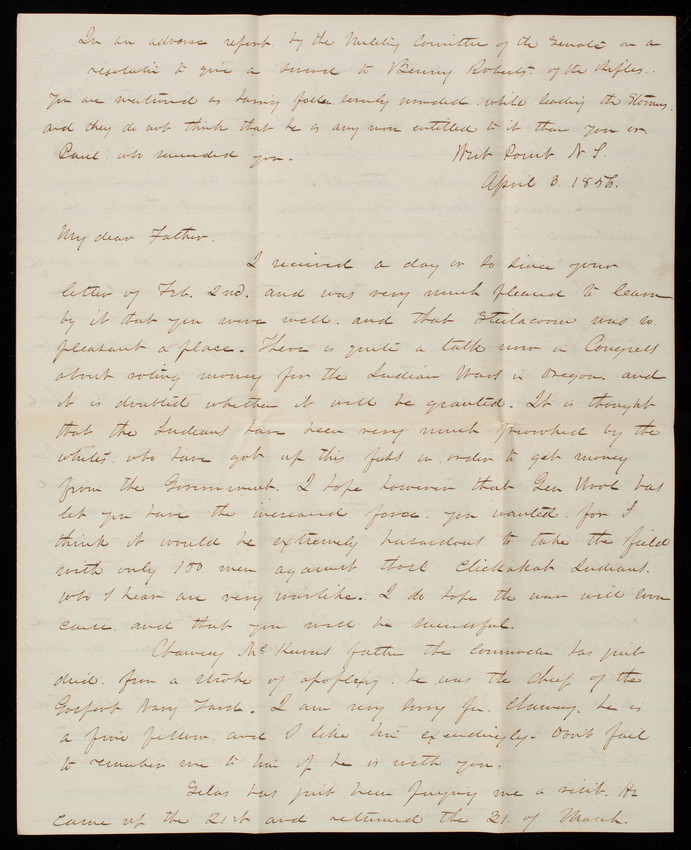 In an adverse report by the Military Committee of the Senate on a
resolution to give a sword to Benny Roberts of the Rifles.
You are mentioned as having fallen severely wounded while leading the Stormers,
and they do not think that he is any more entitled to it than you or
Paul who succeeded you. West Point N.Y.
April 3. 1856.
My dear Father.
I received a day or so since your
letter of Feb. 2nd. and was very much pleased to learn
by it that you were well. and that Steilacoom was so
pleasant a place. There is quite a talk now in Congress
about voting money for the Indian Wars in Oregon. and
it is doubted whether it will be granted. It is thought
that the Indians have been very much provoked by the
whites. who have got up this in order to get money
from the Government. I hope however that Gen Wool has
let you have the increased force you wanted for I
think it would be extremely hazardous to take the field
with only 150 men against those Clickakat Indians.
who I hear are very warlike. I do hope the war will soon
cease. and that you will be successful.
Chauncy McKeever's father the commodore has just
died. from a stroke of apoplexy. he was the chief of the
Gosport Navy Yard. I am very sorry for Chauncy. he is
a fine fellow. and I like him exceedingly. Don't fail
to remember me to him if he is with you.
Silas has just been paying me a visit. He
came up the 21st and returned the 31. of March.